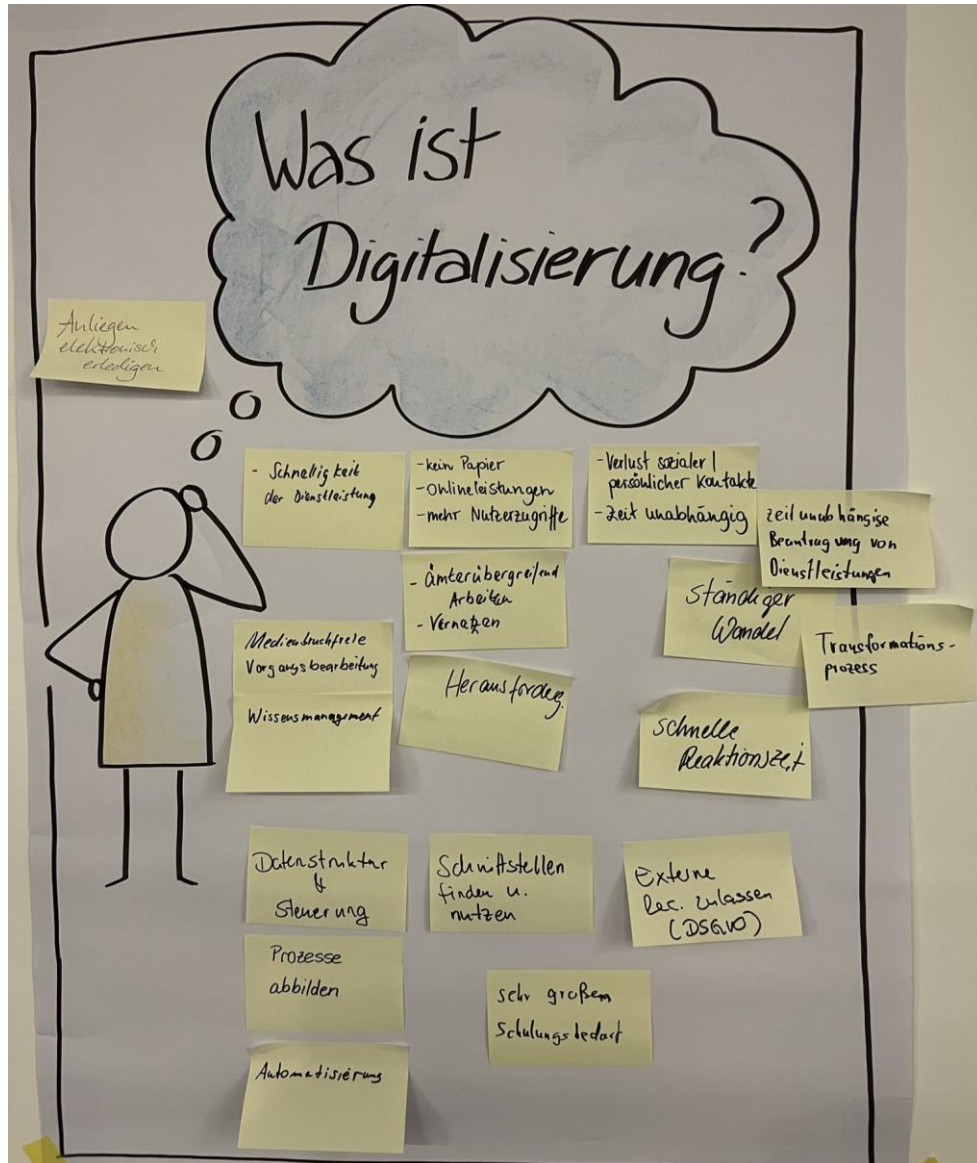 Was ist
Digitalisierung?
Anliegen
elektronisch
erledigen
- Schnelligkeit
der Dienstleistung
- kein Papier
- Onlineleistungen
- mehr Nutzerzugriffe
- Verlust sozialer /
persönlicher Kontakte
- Zeit unabhängig
zeitunabhängige
Beantragung von
Dienstleistungen
- ämterübergreifend
Arbeiten
- Vernetzen
Ständiger
Wandel
Transformations-
prozess
Medienbruchfreie
Vorgangsbearbeitung
Wissensmanagement
Herausforderg.
schnelle
Reaktionszeit
Datenstruktur
&
Steuerung
Schnittstellen
finden u.
nutzen
Externe
zulassen
(DSGVO)
Prozesse
abbilden
sehr großem
Schulungsbedarf
Automatisierung